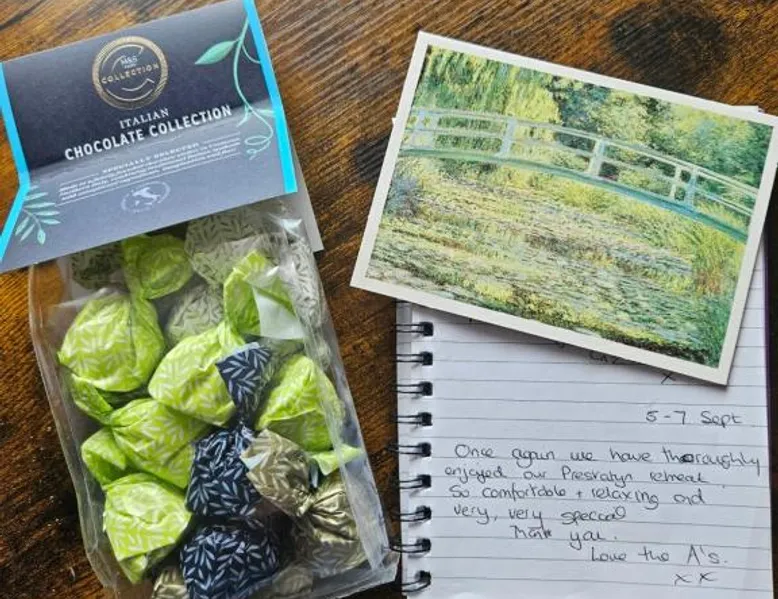 M&S
COLLECTION
ITALIAN
CHOCOLATE COLLECTION
SPECIALLY SELECTED
x
5-7 Sept
Once again we have thoroughly
enjoyed our Prestatyn retreat.
So comfortable + relaxing and
very, very special
Thank you.
Love the A's.
x x